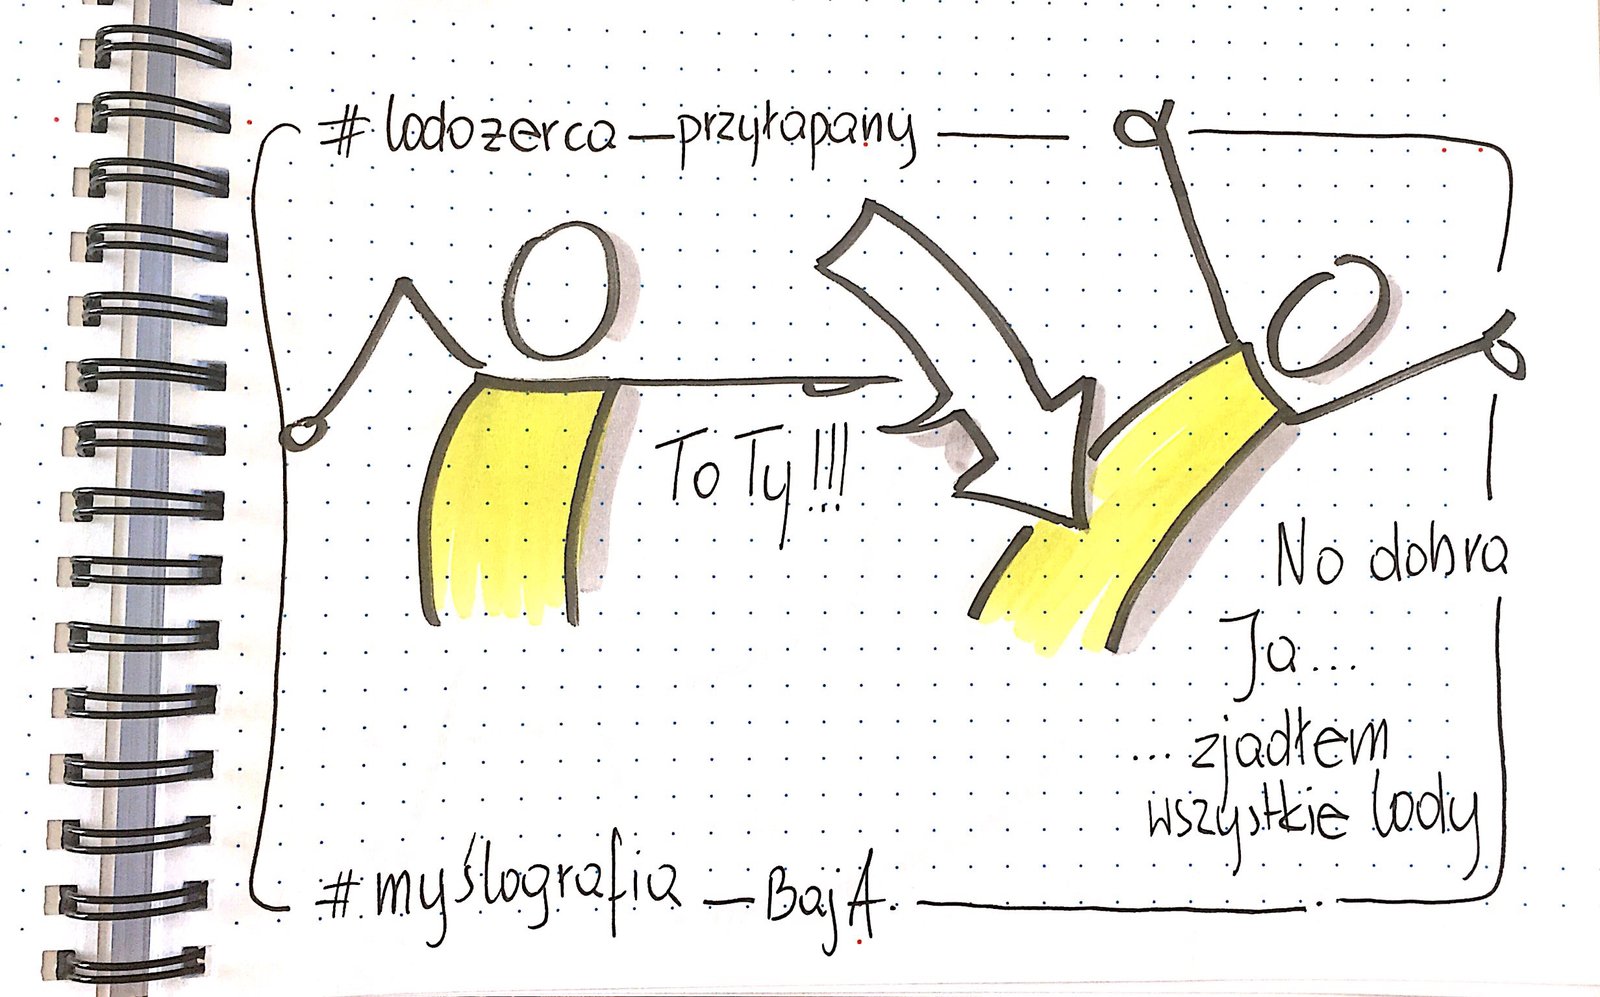 #lodożerca — przyłapany
To Ty!!!
No dobra
Ja...
... zjadłem
wszystkie lody
#myślografia — BajA.